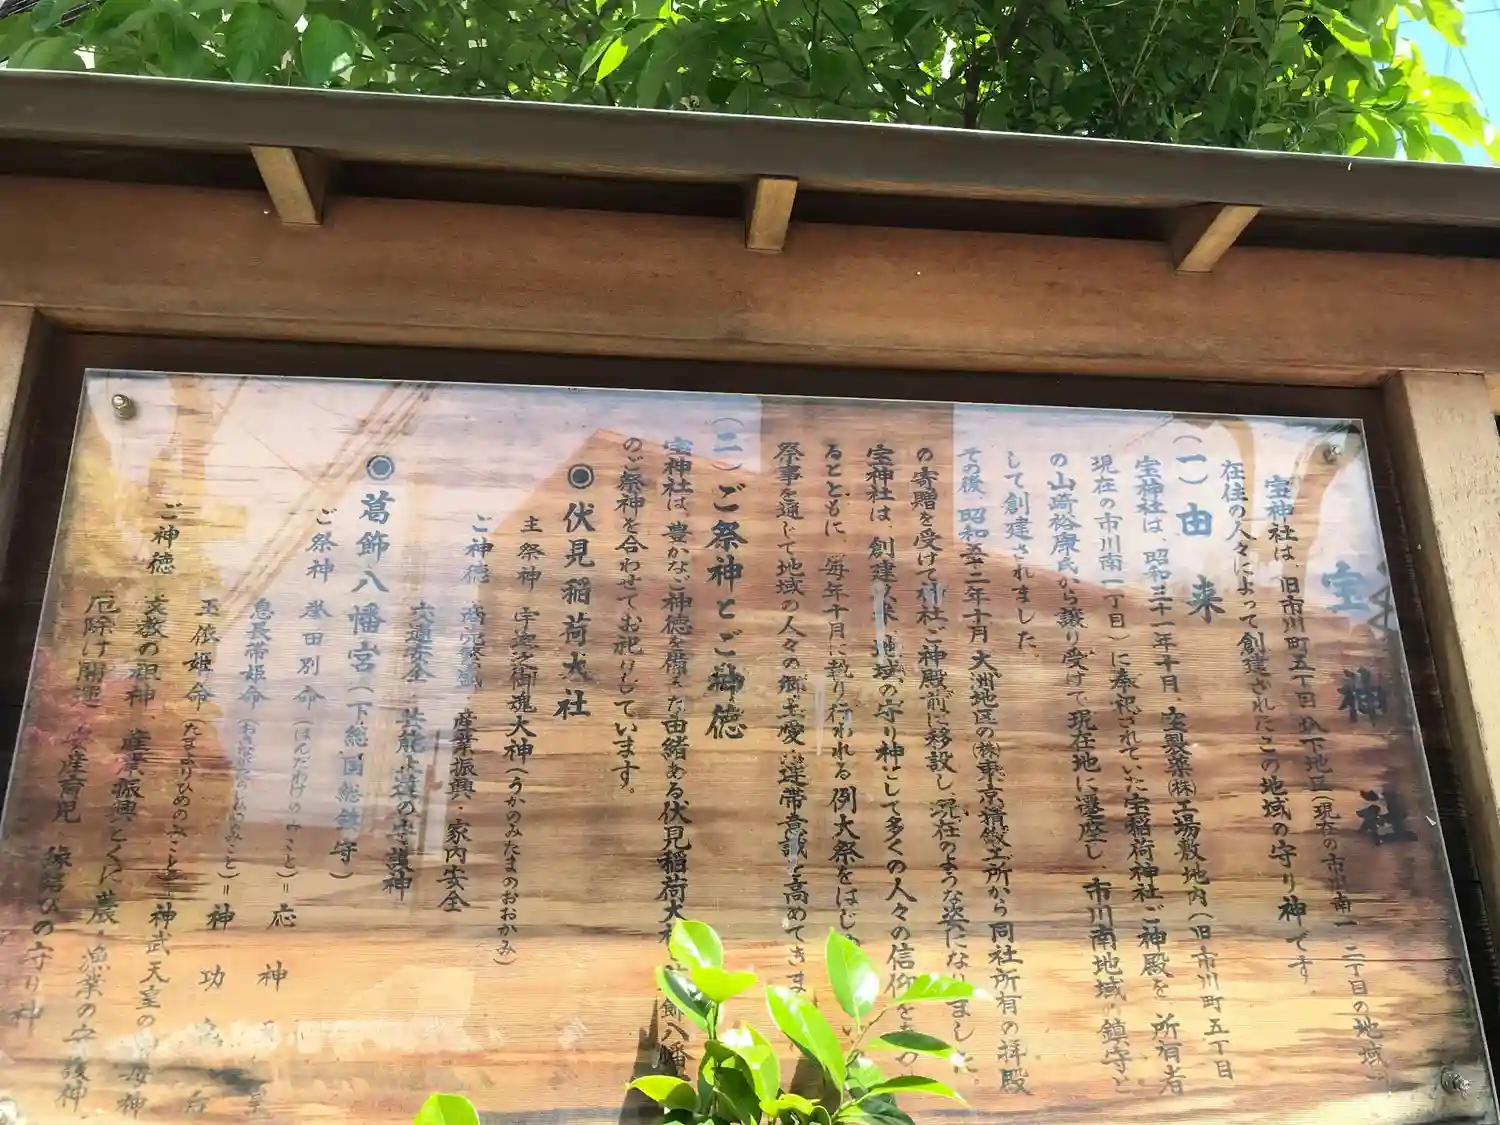 宝神社
宝神社は、旧市川町五丁目 圦下地区(現在の市川南一、二丁目の地域
在住の人々によって創建されたこの地域の守り神です
(一)由来
宝神社は、昭和三十一年十月、宝製薬(株)工場敷地内(旧市川町五丁目
現在の市川南一丁目)に奉祀されていた宝稲荷神社ご神殿を 所有者
の山﨑裕康氏から譲り受けて現在地に遷座し 市川南地域 鎮守と
して創建されました。
その後、昭和五十二年十月 大洲地区の(株)東京 所から同社所有の拝殿
の寄贈を受けて神社ご神殿前に移設し、現在のような姿になりました。
宝神社は、創建以来、地域の守り神として多くの人々の信仰を
るとともに 毎年十月に執り行われる例大祭をはじ
祭事を通じて地域の人々の郷土愛 連帯意識を高めてきま
(二)ご祭神とご神徳
宝神社は、豊かなご神徳を備えた由緒ある伏見稲荷大 飾八幡
のご祭神を合わせてお祀りしています。
◉ 伏見稲荷大社
主祭神 宇迦之御魂大神(うかのみたまのおおかみ)
ご神徳 商売繁盛 産業振興 家内安全
交通安全 芸能上達の守護神
◉ 葛飾八幡宮(下総国総鎮守)
ご祭神 誉田別命(ほんだわけのみこと)=応神天皇
息長帯姫命(おきながたらしひめのみこと)=神功皇后
玉依姫命(たまよりひめのみこと)=神武天皇の 母神
ご神徳 文教の祖神、産業振興とくに農・漁業の守護神
厄除け開運 安産育児 縁結びの守り神